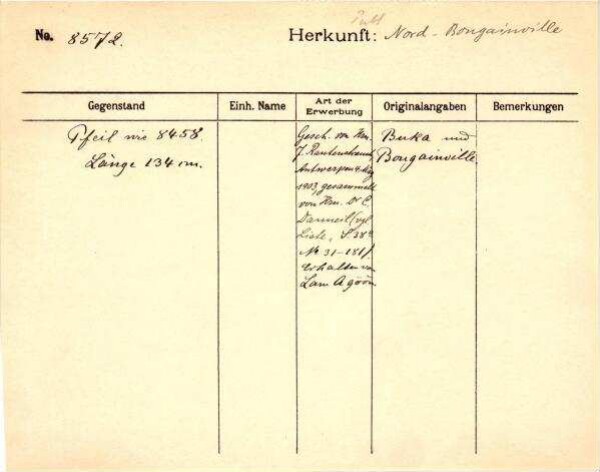 No. 8572.
Herkunft: Nord-Bougainville
Gegenstand
Einh. Name
Art der
Erwerbung
Originalangaben
Bemerkungen
Pfeil wie 8458.
Länge 134 cm.
Gesch. von Hrn.
J.
Antwerpen
1903, gesammelt
von Hrn. Dr C.
Danneil (vgl.
Liste, S. 38
No 31-181)
erhalten von
Lam
Buka und
Bougainville